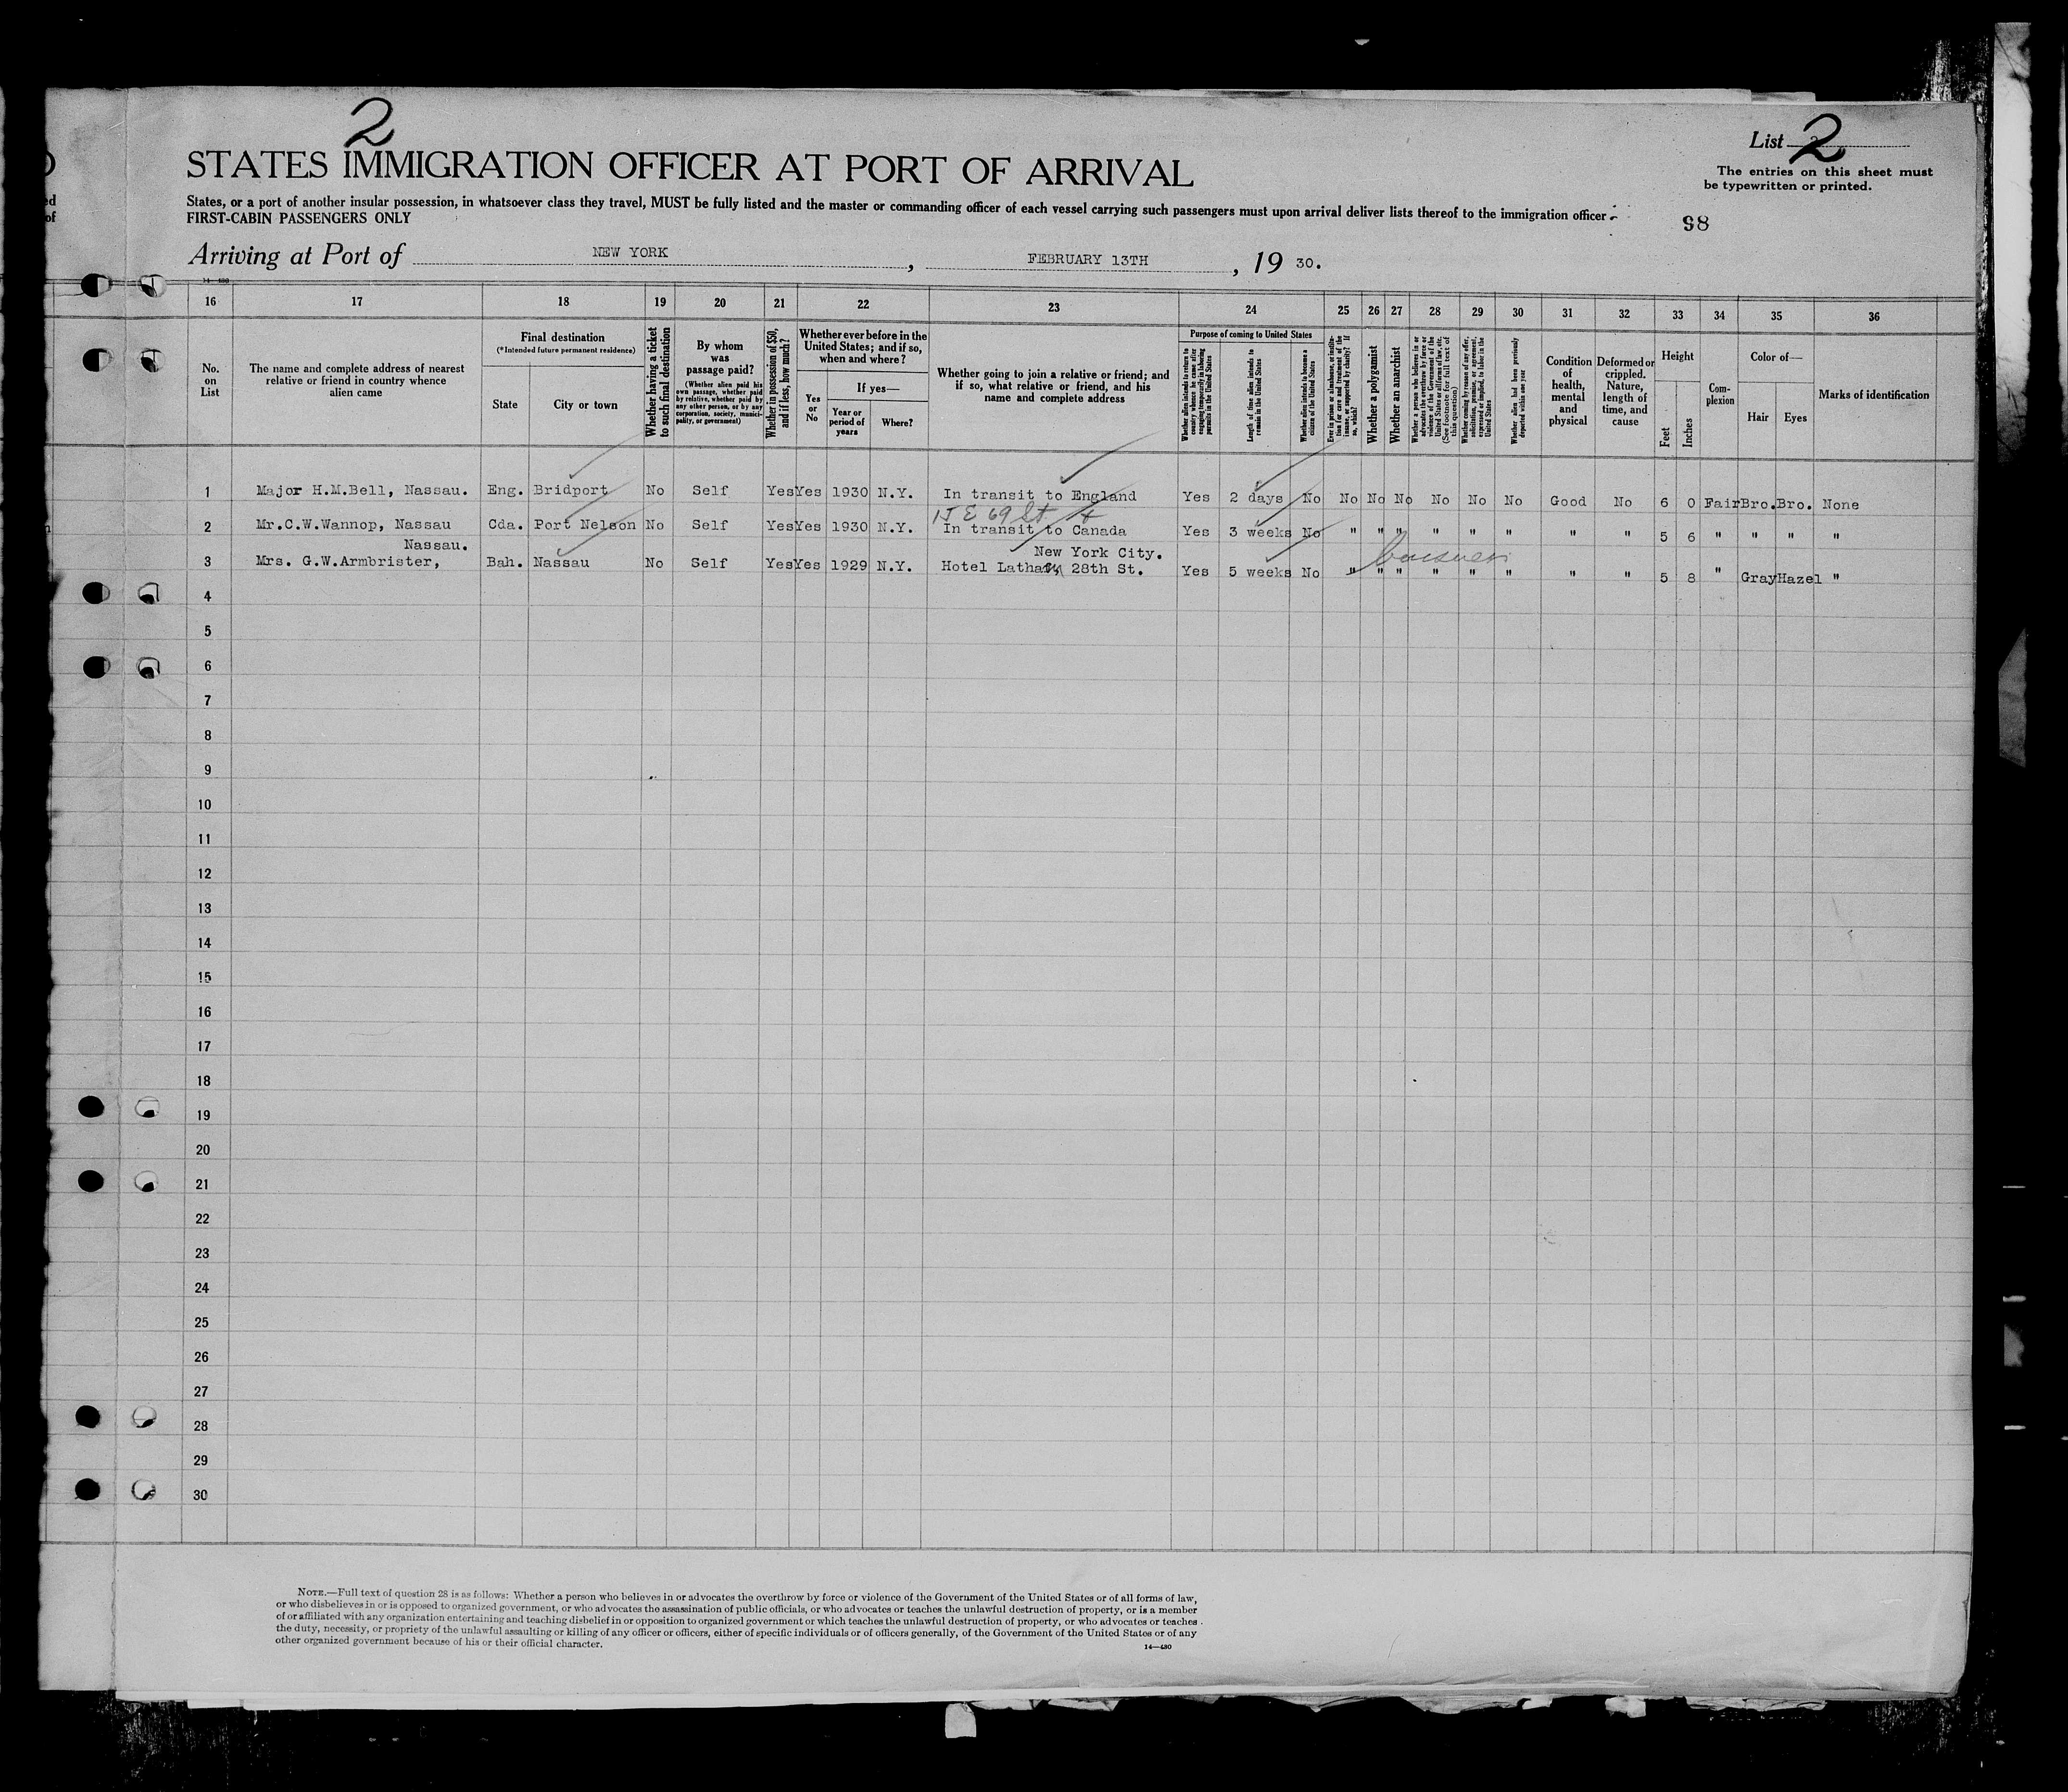 2
List 2
STATES IMMIGRATION OFFICER AT PORT OF ARRIVAL
The entries on this sheet must
be typewritten or printed.
States, or a port of another insular possession, in whatsoever class they travel, MUST be fully listed and the master or commanding officer of each vessel carrying such passengers must upon arrival deliver lists thereof to the immigration officer
FIRST-CABIN PASSENGERS ONLY
98
Arriving at Port of NEW YORK, FEBRUARY 13TH, 19 30.
14—480
16 17 18 19 20 21 22 23 24 25 26 27 28 29 30 31 32 33 34 35 36
No. on List
The name and complete address of nearest relative or friend in country whence alien came
Final destination
(*Intended future permanent residence)
State
City or town
Whether having a ticket to such final destination
By whom was passage paid?
(Whether alien paid his own passage, whether paid by relative, whether paid by any other person, or by any corporation, society, municipality, or government)
Whether in possession of $50, and if less, how much?
Whether ever before in the United States; and if so, when and where?
Yes or No
If yes—
Year or period of years
Where?
Whether going to join a relative or friend; and if so, what relative or friend, and his name and complete address
Purpose of coming to United States
Whether alien intends to return to country whence he came after engaging temporarily in laboring pursuits in the United States
Length of time alien intends to remain in the United States
Whether alien intends to become a citizen of the United States
Ever in prison or almshouse, or institution for care and treatment of the insane, or supported by charity? If so, which?
Whether a polygamist
Whether an anarchist
Whether a person who believes in or advocates the overthrow by force or violence of the Government of the United States or all forms of law, etc. (See footnote for full text of this question)
Whether coming by reason of any offer, solicitation, promise, or agreement, expressed or implied, to labor in the United States
Whether alien had been previously deported within one year
Condition of health, mental and physical
Deformed or crippled. Nature, length of time, and cause
Height
Feet
Inches
Complexion
Color of—
Hair
Eyes
Marks of identification
1 Major H.M.Bell, Nassau. Eng. Bridport No Self Yes Yes 1930 N.Y. In transit to England Yes 2 days No No No No No No No Good No 6 0 Fair Bro. Bro. None
15 E 69 St
2 Mr.C.W.Wannop, Nassau Cda. Port Nelson No Self Yes Yes 1930 N.Y. In transit to Canada Yes 3 weeks No " " " " " " " " 5 6 " " " "
Nassau. New York City.
3 Mrs. G.W.Armbrister, Bah. Nassau No Self Yes Yes 1929 N.Y. Hotel Latham 28th St. Yes 5 weeks No " " " " " " " " 5 8 " Gray Hazel "
4
5
6
7
8
9
10
11
12
13
14
15
16
17
18
19
20
21
22
23
24
25
26
27
28
29
30
NOTE.—Full text of question 28 is as follows: Whether a person who believes in or advocates the overthrow by force or violence of the Government of the United States or of all forms of law,
or who disbelieves in or is opposed to organized government, or who advocates the assassination of public officials, or who advocates or teaches the unlawful destruction of property, or is a member
of or affiliated with any organization entertaining and teaching disbelief in or opposition to organized government or which teaches the unlawful destruction of property, or who advocates or teaches
the duty, necessity, or propriety of the unlawful assaulting or killing of any officer or officers, either of specific individuals or of officers generally, of the Government of the United States or of any
other organized government because of his or their official character.
14—480